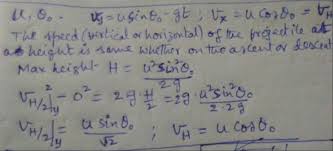 u, θ₀.  v_y = u sinθ₀ - gt ; v_x = u cosθ₀ = v_H
The speed (vertical or horizontal) of the projectile at
a height is same whether on the ascent or descent
Max height H = u² sin²θ₀ / 2g
v²_H/2|y - 0² = 2g · H/2 = 2g · u² sin²θ₀ / 2·2g
v_H/2|y = u sinθ₀ / √2 ; v_H = u cosθ₀